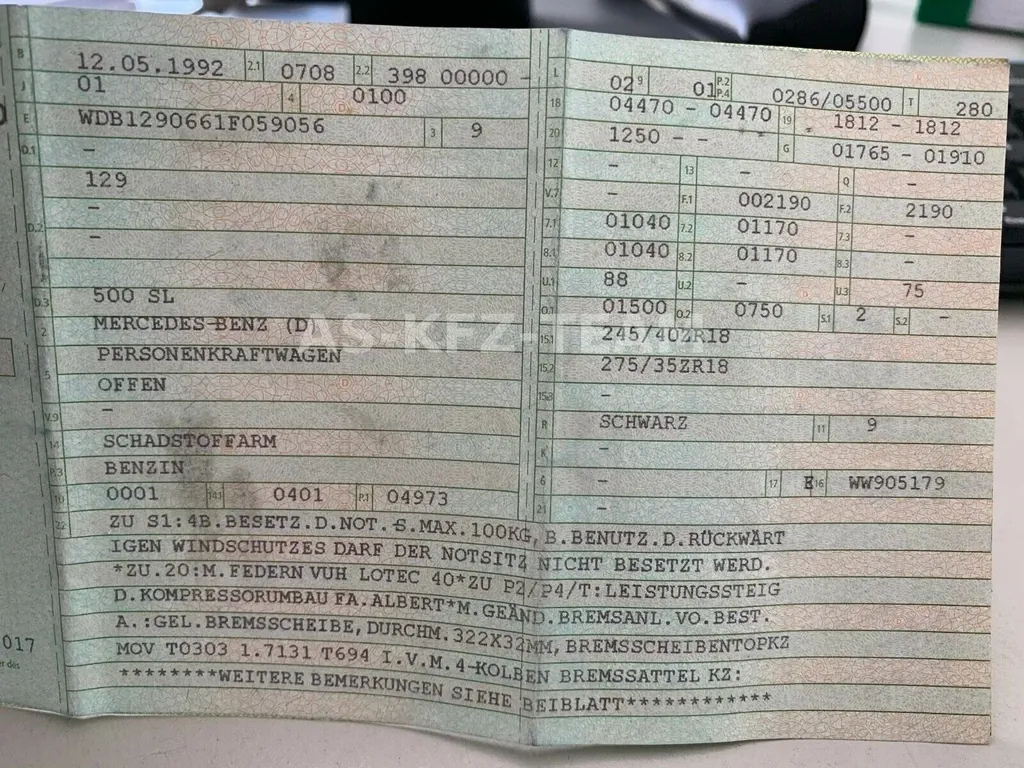 B 12.05.1992 2.1 0708 2.2 398 00000 -
J 01 4 0100
E WDB1290661F059056 3 9
D.1 -
129
D.2 -
-
D.3 500 SL
2 MERCEDES-BENZ (D)
PERSONENKRAFTWAGEN
5 OFFEN
V.9 -
14 SCHADSTOFFARM
P.3 BENZIN
10 0001 14.1 0401 P.1 04973
L 02 9 01 P.2 P.4 0286/05500 T 280
18 04470 - 04470 19 1812 - 1812
20 1250 - - G 01765 - 01910
12 - 13 - Q -
V.7 - F.1 002190 F.2 2190
7.1 01040 7.2 01170 7.3 -
8.1 01040 8.2 01170 8.3 -
U.1 88 U.2 - U.3 75
O.1 01500 O.2 0750 S.1 2 S.2 -
15.1 245/40ZR18
15.2 275/35ZR18
15.3 -
R SCHWARZ 11 9
K -
6 - 17 E 16 WW905179
21 -
22 ZU S1:4B.BESETZ.D.NOT.-S.MAX.100KG, B.BENUTZ.D.RÜCKWÄRT
IGEN WINDSCHUTZES DARF DER NOTSITZ NICHT BESETZT WERD.
*ZU.20:M.FEDERN VUH LOTEC 40*ZU P2/P4/T:LEISTUNGSSTEIG
D.KOMPRESSORUMBAU FA.ALBERT*M.GEÄND.BREMSANL.VO.BEST.
A.:GEL.BREMSSCHEIBE,DURCHM.322X32MM, BREMSSCHEIBENTOPKZ
MOV T0303 1.7131 T694 I.V.M.4-KOLBEN BREMSSATTEL KZ:
********WEITERE BEMERKUNGEN SIEHE BEIBLATT************
017
AS-KFZ-TE